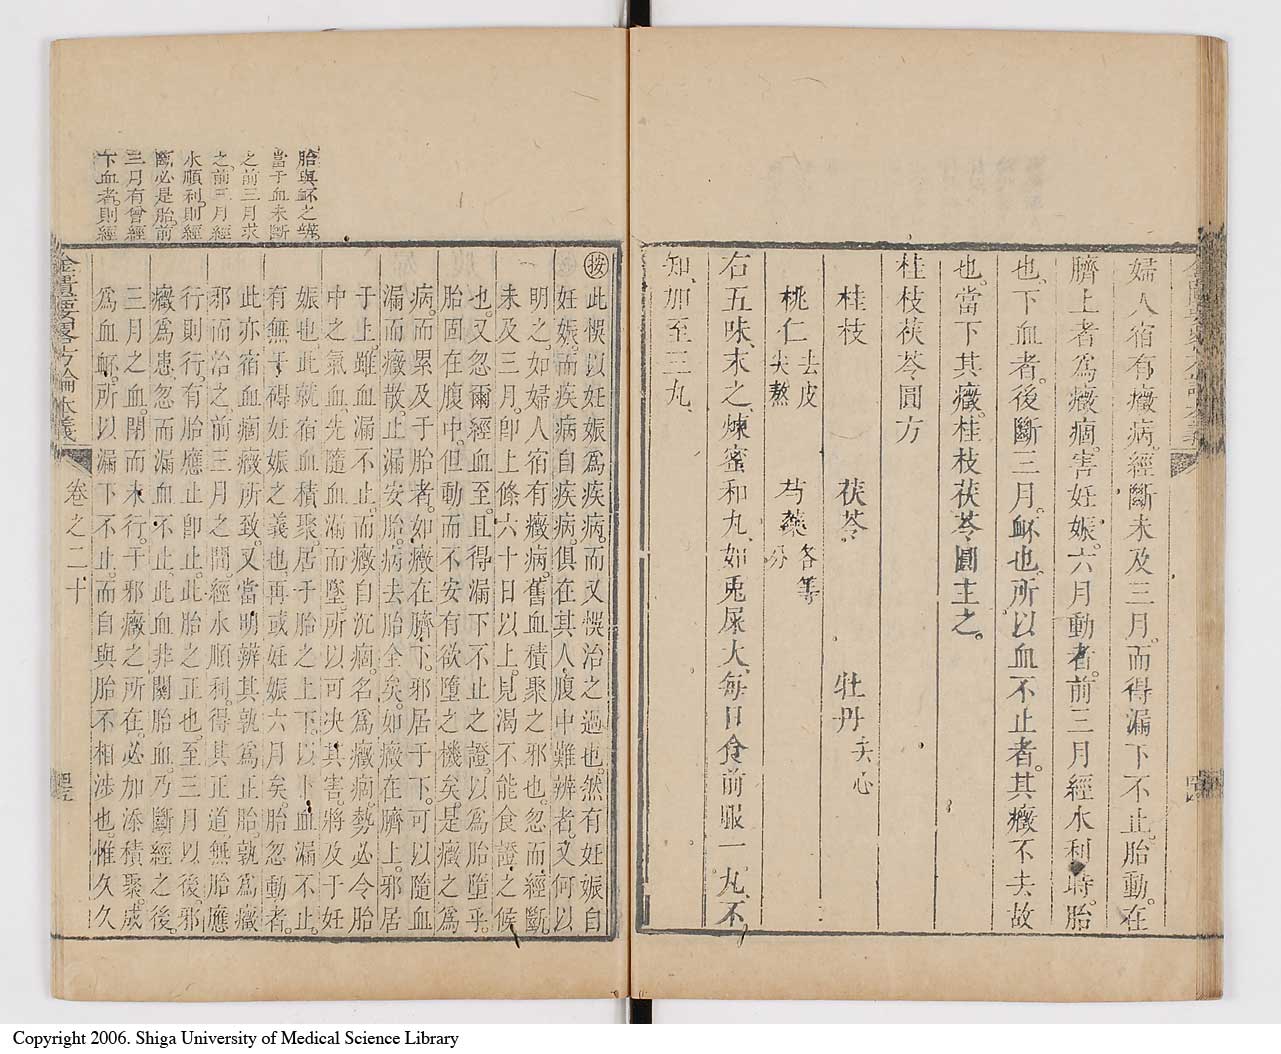 婦人宿有癥病。經斷未及三月。而得漏下不止。胎動。在
臍上者。爲癥痼。害妊娠。六月動者。前三月經水利時。胎
也。下血者。後斷三月。衃也。所以血不止者。其癥不去故
也。當下其癥。桂枝茯苓圓主之。
桂枝茯苓圓方
桂枝 茯苓 牡丹去心
桃仁去皮尖熬 芍藥各等分
右五味。末之。煉蜜和丸。如兎屎大。每日食前服一丸。不
知。加至三丸。
胎與衃之辨
當于血未斷
之前三月求
之。前三月經
水順利。則經
斷必是胎。前
三月有曾經
下血者。則經
按此悞以妊娠爲疾病。而又悞治之過也。然有妊娠自
妊娠。而疾病自疾病。俱在其人腹中難辨者。又何以
明之。如婦人宿有癥病。舊血積聚之邪也。忽而經斷。
未及三月。卽上條六十日以上。見渴不能食證之候
也。又忽爾經血至。且得漏下不止之證。以爲胎墮乎。
胎固在腹中。但動而不安。有欲墮之機矣。是癥之爲
病。而累及于胎者。如癥在臍下。邪居于下。可以隨血
漏而癥散。止漏安胎。病去胎全矣。如癥在臍上。邪居
于上。雖血漏不止。而癥自沉痼。名爲癥痼。勢必令胎
中之氣血。先隨血漏而墜。所以可决其害。將及于妊
娠也。此就宿血積聚。居于胎之上下。以卜血漏不止。
有無于碍妊娠之義也。再或妊娠六月矣。胎忽動者。
此亦宿血痼癥所致。又當明辨其孰爲正胎。孰爲癥
邪而治之。前三月之間。經水順利。得其正道。無胎應
行則行。有胎應止卽止。此胎之正也。至三月以後。邪
癥爲患。忽而漏血不止。此血非關胎血。乃斷經之後。
三月之血。閉而未行。于邪癥之所在。必加添積聚。成
爲血衃。所以漏下不止。而自與胎不相涉也。惟久久
金匱要略方論本義
卷之二十